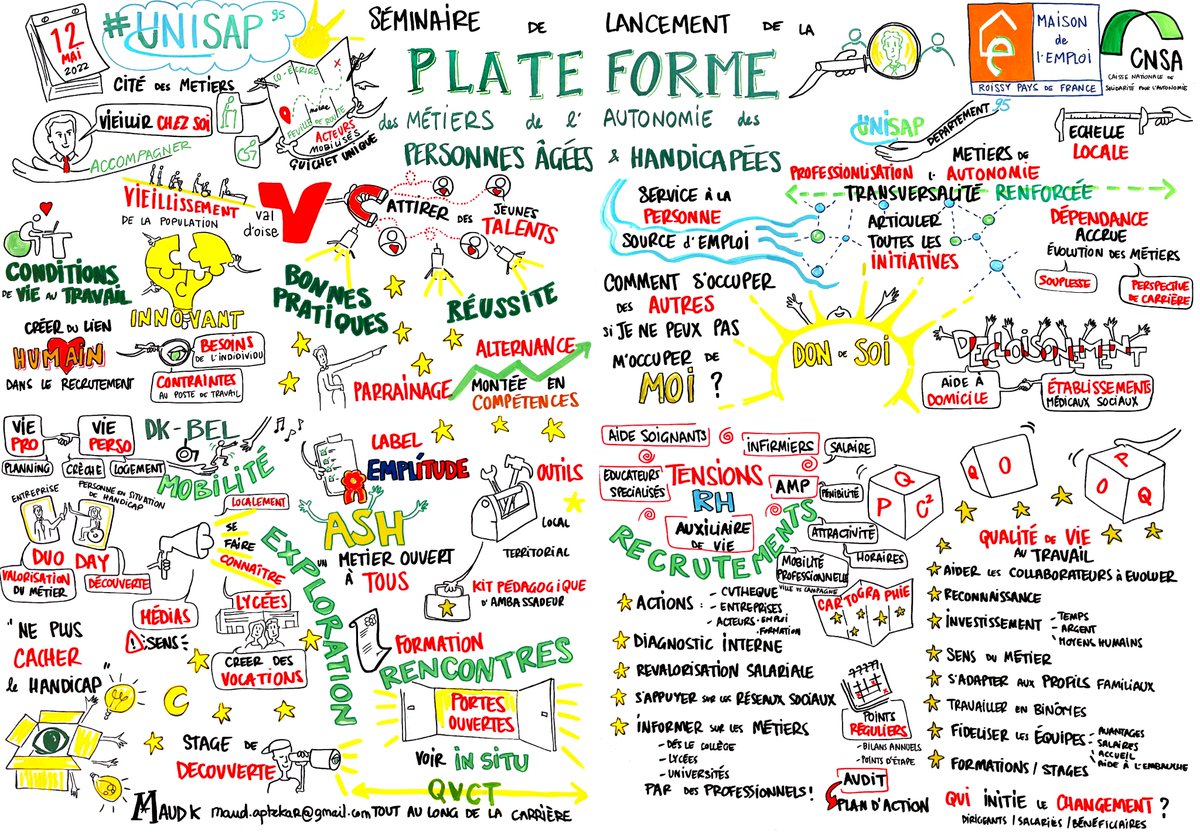 12
MAI
2022
#UNISAP 95
CITÉ DES METIERS
VIEILLIR CHEZ SOI
ACCOMPAGNER
CO-ÉCRIRE
notre
FEUILLE DE ROUTE
ACTEURS
MOBILISÉS
GUICHET UNIQUE
SÉMINAIRE DE LANCEMENT DE LA
PLATEFORME
des MÉTIERS de l'AUTONOMIE des
PERSONNES ÂGÉES & HANDICAPÉES
e
MAISON
de
l'EMPLOI
ROISSY PAYS DE FRANCE
CNSA
CAISSE NATIONALE DE
SOLIDARITÉ POUR L'AUTONOMIE
UNISAP
DÉPARTEMENT 95
ECHELLE
LOCALE
VIEILLISSEMENT
DE LA POPULATION
val
d'oise
ATTIRER DES JEUNES
TALENTS
SERVICE À LA
PERSONNE
SOURCE d'EMPLOI
METIERS DE
PROFESSIONLISATION l'AUTONOMIE
TRANSVERSALITÉ RENFORCÉE
ARTICULER
TOUTES LES
INITIATIVES
DÉPENDANCE
ACCRUE
ÉVOLUTION DES MÉTIERS
SOUPLESSE
PERSPECTIVE
DE CARRIÈRE
CONDITIONS
DE VIE AU TRAVAIL
INNOVANT
BONNES
PRATIQUES
RÉUSSITE
COMMENT S'OCCUPER
DES AUTRES
SI JE NE PEUX PAS
M'OCCUPER DE
MOI ?
DON DE SOI
DECLOISONEMENT
AIDE À
DOMICILE
ÉTABLISSEMENTS
MÉDICAUX SOCIAUX
CRÉER DU LIEN
HUMAIN
DANS LE RECRUTEMENT
BESOINS
DE L'INDIDIVIDU
CONTRAINTES
AU POSTE DE TRAVAIL
PARRAINAGE
ALTERNANCE
MONTÉE EN
COMPÉTENCES
VIE
PRO
VIE
PERSO
PLANNING
CRÈCHE
LOGEMENT
DK-BEL
MOBILITÉ
LABEL
EMPL'ITUDE
OUTILS
LOCAL
TERRITORIAL
ASH
UN METIER OUVERT
À TOUS
KIT PÉDAGOGIQUE
D'AMBASSADEUR
ENTREPRISE
PERSONNE EN SITUATION
DE HANDICAP
DUO DAY
VALORISATION
DU MÉTIER
DÉCOUVERTE
LOCALEMENT
SE
FAIRE
CONNAÎTRE
MÉDIAS
! SENS
LYCÉES
CREER DES
VOCATIONS
EXPLORATION
"NE PLUS
CACHER
le HANDICAP"
FORMATION
RENCONTRES
PORTES
OUVERTES
VOIR IN SITU
STAGE DE
DECOUVERTE
QVCT
TOUT AU LONG DE LA CARRIÈRE
MAUD K maud.aptekar@gmail.com
AIDE SOIGNANTS
INFIRMIERS
SALAIRE
EDUCATEURS
SPECIALISÉS
TENSIONS
RH
AMP
PÉNIBILITÉ
AUXILIAIRE
DE VIE
RECRUTEMENTS
ATTRACTIVITÉ
HORAIRES
MOBILITÉ
PROFESSIONNELLE
VILLE VS CAMPAGNE
Q
P C²
Q O
P
O Q
ACTIONS :
- CVTHEQUE
- ENTREPRISES
- ACTEURS - EMPLOI
- FORMATION
DIAGNOSTIC INTERNE
REVALORISATION SALARIALE
S'APPUYER SUR LES RÉSEAUX SOCIAUX
INFORMER SUR LES MÉTIERS
- DÉS LE COLLÈGE
- LYCÉES
- UNIVERSITÉS
PAR DES PROFESSIONNELS !
CARTOGRAPHIE
POINTS
RÉGULIERS
- BILANS ANNUELS
- POINTS D'ÉTAPE
AUDIT
PLAN D'ACTION
QUALITÉ DE VIE
AU TRAVAIL
AIDER LES COLLABORATEURS À EVOLUER
RECONNAISSANCE
INVESTISSEMENT
- TEMPS
- ARGENT
- MOYENS HUMAINS
SENS DU MÉTIER
S'ADAPTER AUX PROFILS FAMILIAUX
TRAVAILLER EN BINÔMES
FIDELISER LES ÉQUIPES
- AVANTAGES
- SALAIRES
- ACCUEIL
- AIDE À L'EMBAUCHE
FORMATIONS / STAGES
QUI INITIE LE CHANGEMENT ?
DIRIGEANTS / SALARIÉS / BÉNÉFICIAIRES